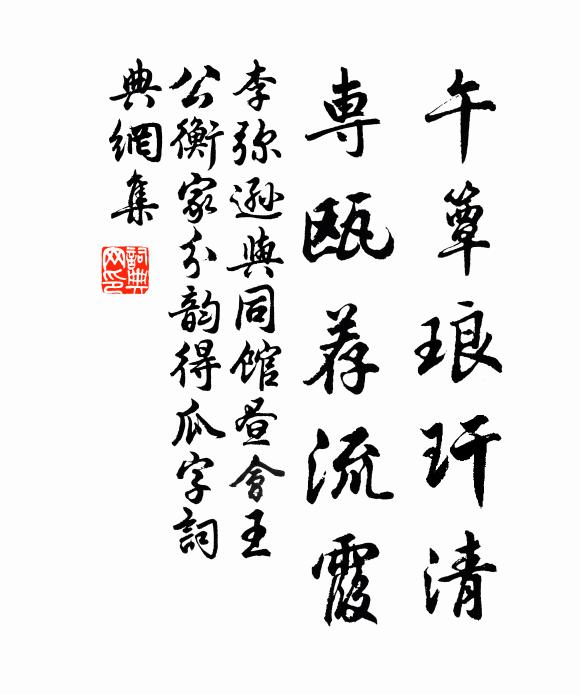 午簟琅玕清
專瓯荐流霞
李弥遜與同館昼會王
公衡家分韵得瓜字詞
典網集
詞典
网印